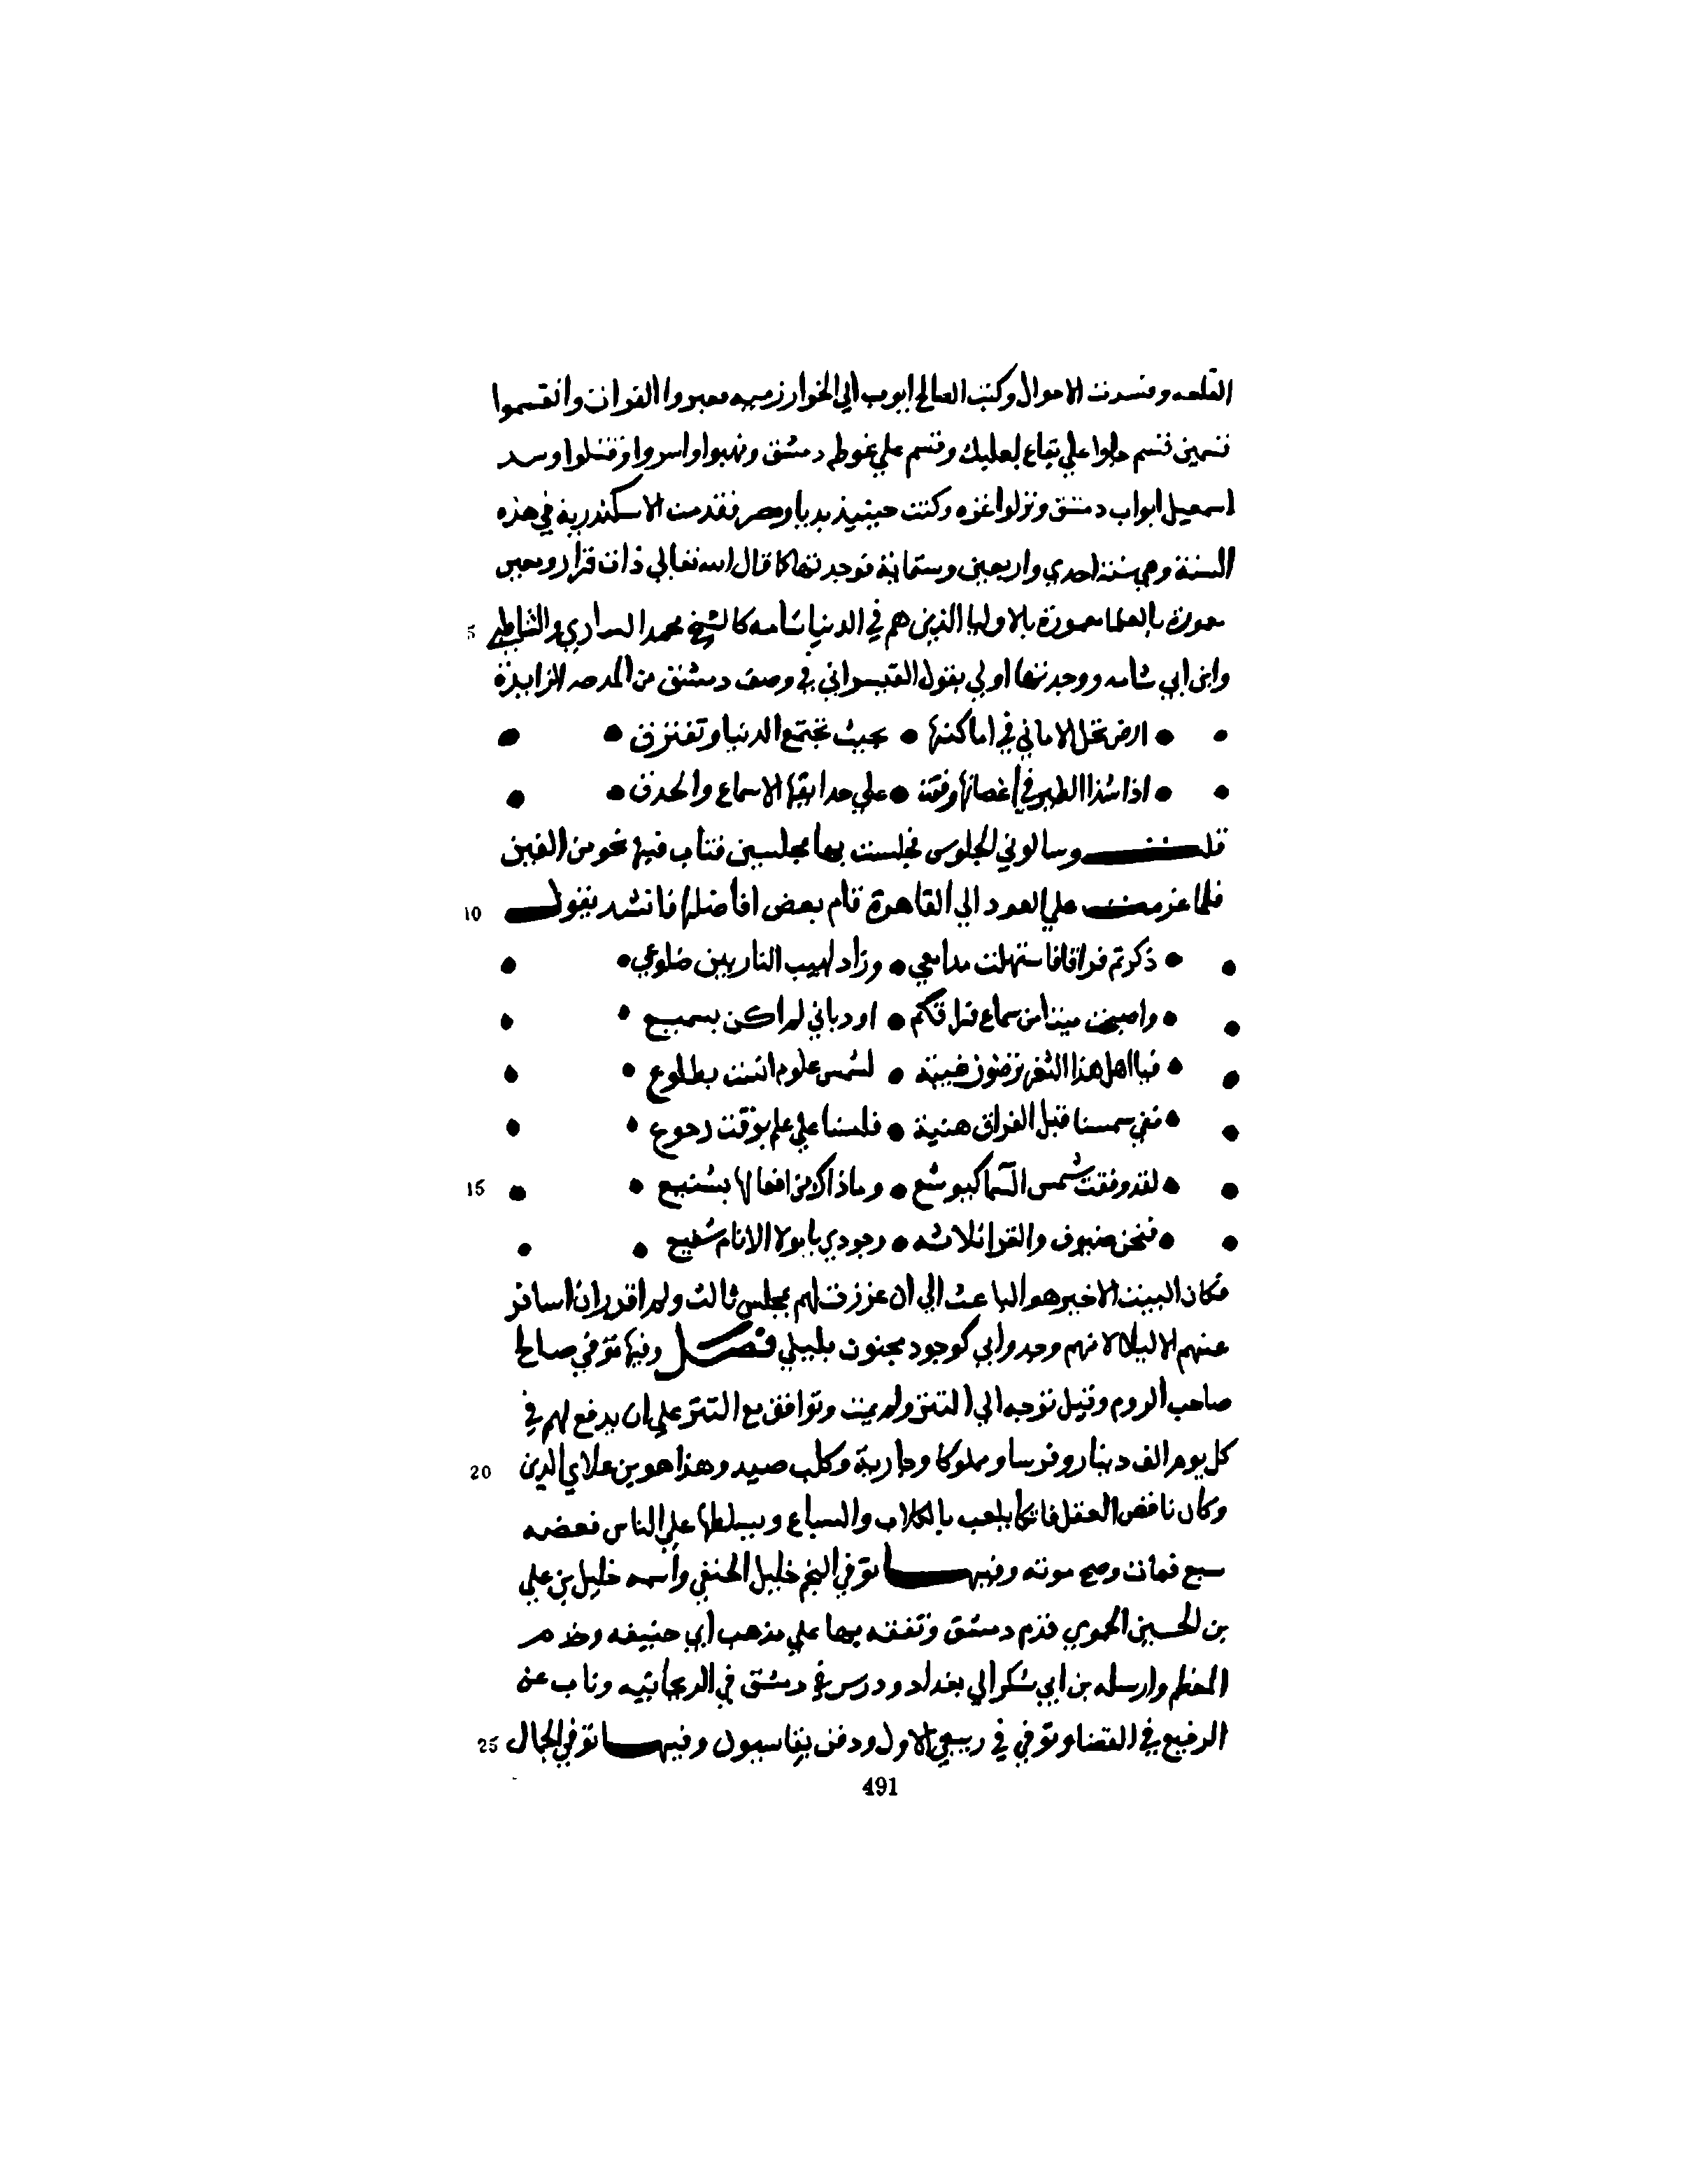 القلعه وفسدت الاحوال وكتب الصالح ايوب الي الخوارزميه فعبروا الفرات وانقسموا
قسمين قسم جاوا علي بقاع بعلبك وقسم علي غوطه دمشق ونهبوا واسروا وقتلوا وسد
اسمعيل ابواب دمشق ونزلوا غزه وكنت حينيذ بديار مصر فقدمت الاسكندرية في هذه
السنة وهي سنة احدي واربعين وستماية فوجدتها كما قال الله تعالي ذات قرار ومعين
معمورة بالعلما معمورة بالاوليا الذين هم في الدنيا شامه كالشيخ محمد والشاطبي
5
وابن ابي شامه ووجدتها اولي بقول القيسراني في وصف دمشق من
ارض تحل الاماني في اماكنها • بحيث تجتمع الدنيا وتفترق
اذا شدا الطير في اغصانها وقفت • علي حدايقها الاسماع والحدق
قلت وسالوني الجلوس فجلست بها مجلسين فتاب فيها نحو من الفين
فلما عزمت علي العود الي القاهرة قام بعض افاضلها فانشد يقول
10
ذكرتم فراقا فاستهلت مدامعي • وزاد لهيب النار بين ضلوعي
واصبحت ميتا من سماع • اود باني لم اكن بسميع
فيا اهل هذا الثغر ترضون غيبة • لشمس علوم اتت بطلوع
قفي شمسنا قبل الفراق هنية • فلسنا علي علم بوقت رجوع
لقد وقفت شمس السما ليوشع • وما ذا كمن
15
فنحن ضيوف والقرا ثلاثة • وجودي
فكان البيت الاخير هو الباعث الي ان عززت لهم بمجلس ثالث ولم اقدر ان اسافر
عنهم الا ليلا لانهم وجدوا بي كوجود مجنون بليلي فصل وفيها توفي صالحا
صاحب الروم وقيل توجه الي التتر ولم يمت وتوافق مع التتر علي ان يدفع لهم في
كل يوم الف دينار وفرسا ومملوكا وجارية وكلب صيد وهذا هو بن علاي الدين
20
وكان ناقص العقل فاتكا يلعب بالكلاب والسباع ويسلطها علي الناس فعضه
سبع فمات وصح موته وفيها توفي النجم خليل الحنفي واسمه خليل بن علي
بن الحسين الحموي قدم دمشق وتفقه بها علي مذهب ابي حنيفه وخدم
المعظم وارسله بن ابي شكر الي بغداد ودرس في دمشق في الريحانيه وناب عن
الرفيع في القضا وتوفي في ربيع الاول ودفن بقاسيون وفيها توفي الجمال
25
491